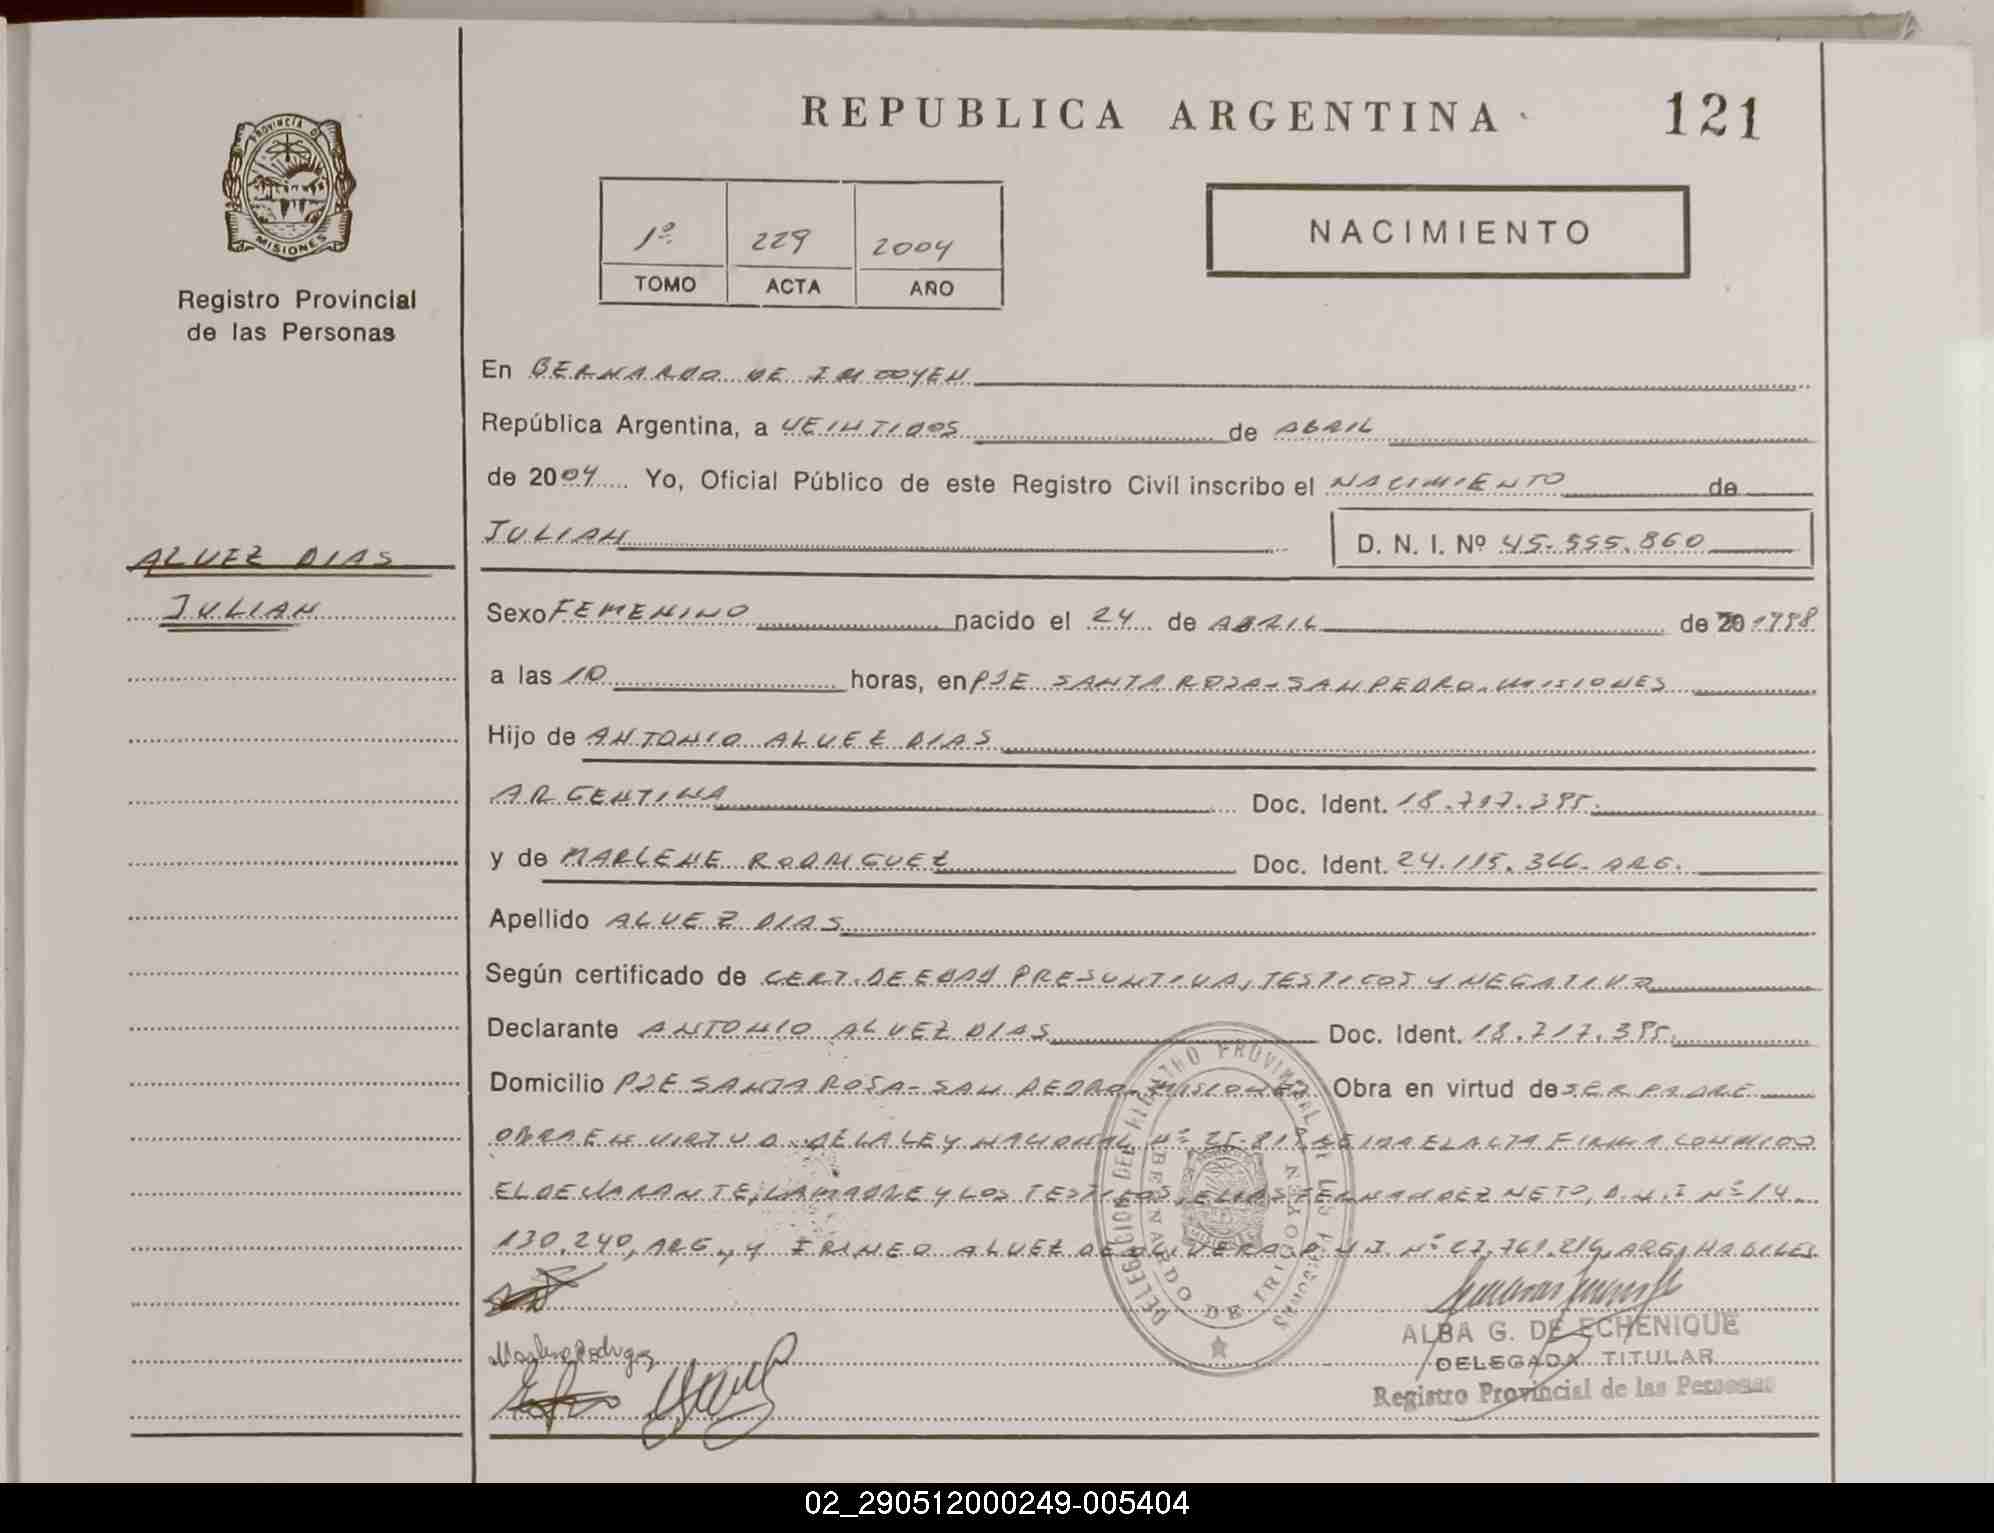 REPUBLICA ARGENTINA
121
PROVINCIA D
MISIONES
Registro Provincial
de las Personas
1º 229 2004
TOMO ACTA AÑO
NACIMIENTO
En BERNARDO DE IRIGOYEN
República Argentina, a VEINTIDOS de ABRIL
de 2004 Yo, Oficial Público de este Registro Civil inscribo el NACIMIENTO de
JULIAN D. N. I. Nº 45.555.860
ALVEZ DIAS
JULIAN
Sexo FEMENINO nacido el 24 de ABRIL de 20 1998
a las 10 horas, en PJE SANTA ROSA - SAN PEDRO. MISIONES
Hijo de ANTONIO ALVEZ DIAS
ARGENTINA Doc. Ident. 18.717.395.
y de MARLENE RODRIGUEZ Doc. Ident. 24.115.366. ARG.
Apellido ALVEZ DIAS
Según certificado de CERT. DE EDAD PRESUNTIVA, TESTIGOS Y NEGATIVO
Declarante ANTONIO ALVEZ DIAS Doc. Ident. 18.717.395.
Domicilio PJE SANTA ROSA - SAN PEDRO. MISIONES Obra en virtud de SER PADRE
OBRA EN VIRTUD DE LA LEY NACIONAL Nº 25.819 LEIDA EL ACTA FIRMA CONMIGO
EL DECLARANTE, LA MADRE Y LOS TESTIGOS, ELIAS FERNANDEZ NETO, D.N.I Nº 14.
130.240, ARG., Y IRINEO ALVEZ DE OLIVERA, D.N.I Nº 27.769.216, ARG, HABILES
DELEGACION DEL REGISTRO PROVINCIAL DE LAS PERSONAS
BERNARDO DE IRIGOYEN
Marlene Rodriguez
ALBA G. DE ECHENIQUE
DELEGADA TITULAR
Registro Provincial de las Personas
02_290512000249-005404